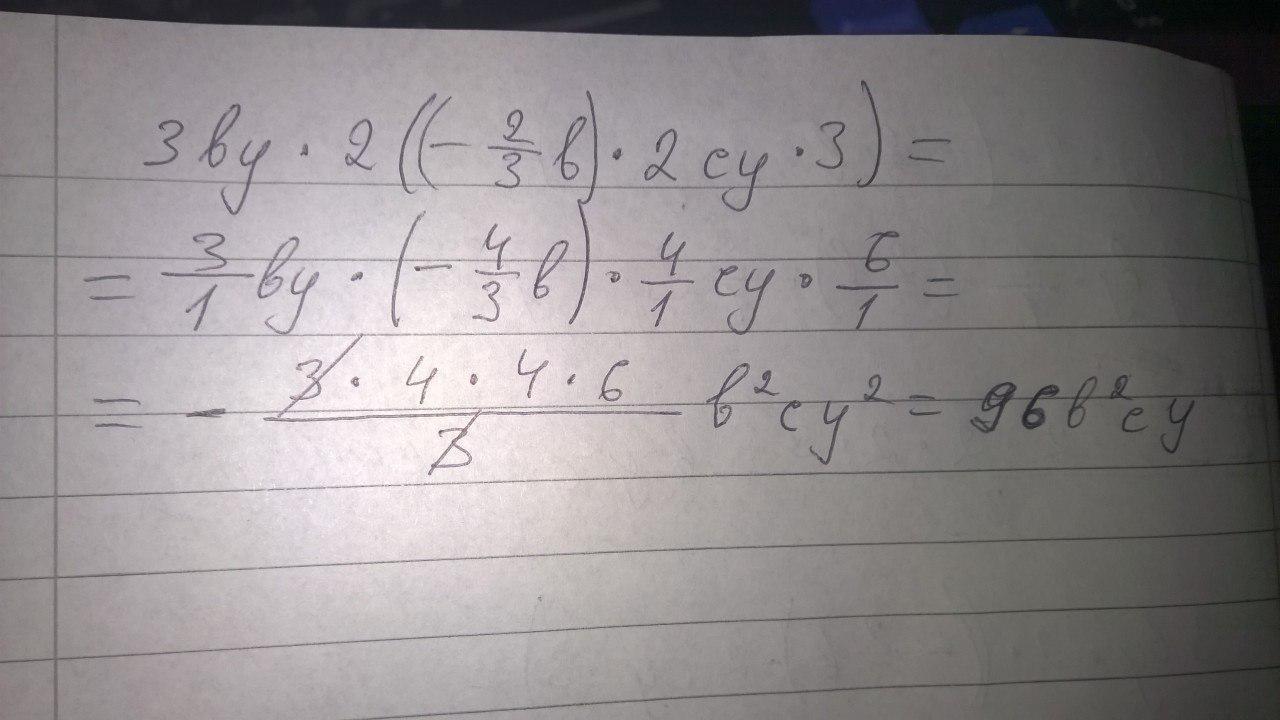 3by · 2((-2/3 b) · 2cy · 3) =
= 3/1 by · (-4/3 b) · 4/1 cy · 6/1 =
= - 3 · 4 · 4 · 6 / 3 b²cy² = 96b²cy